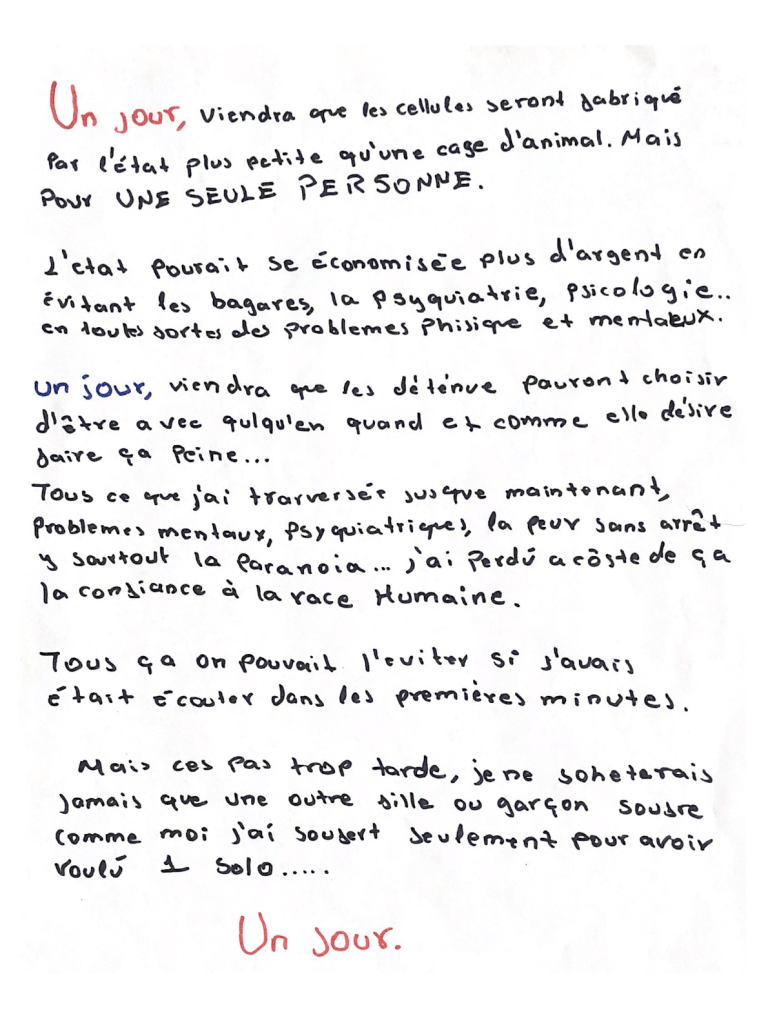 Un jour, viendra que les cellules seront fabriqué
Par l'état plus petite qu'une cage d'animal. Mais
Pour UNE SEULE PERSONNE.
L'etat pourait se économisée plus d'argent en
évitant les bagares, la psyquiatrie, psicologie..
en toutes sortes des problemes phisique et mentaux.
un jour, viendra que les déténue pauront choisir
d'être avec qulqu'en quand et comme elle désire
faire ça Peine...
Tous ce que j'ai trarversée jusque maintenant,
Problemes mentaux, Psyquiatriques, la peur sans arrêt
y sourtout la Paranoia... j'ai Perdú a côste de ça
la confiance à la race Humaine.
Tous ça on pouvait l'eviter si j'avais
était écouter dans les premières minutes.
Mais ces pas trop tarde, je ne soheterais
jamais que une outre fille ou garçon soufre
comme moi j'ai soufert seulement pour avoir
voulú 1 solo.....
Un jour.